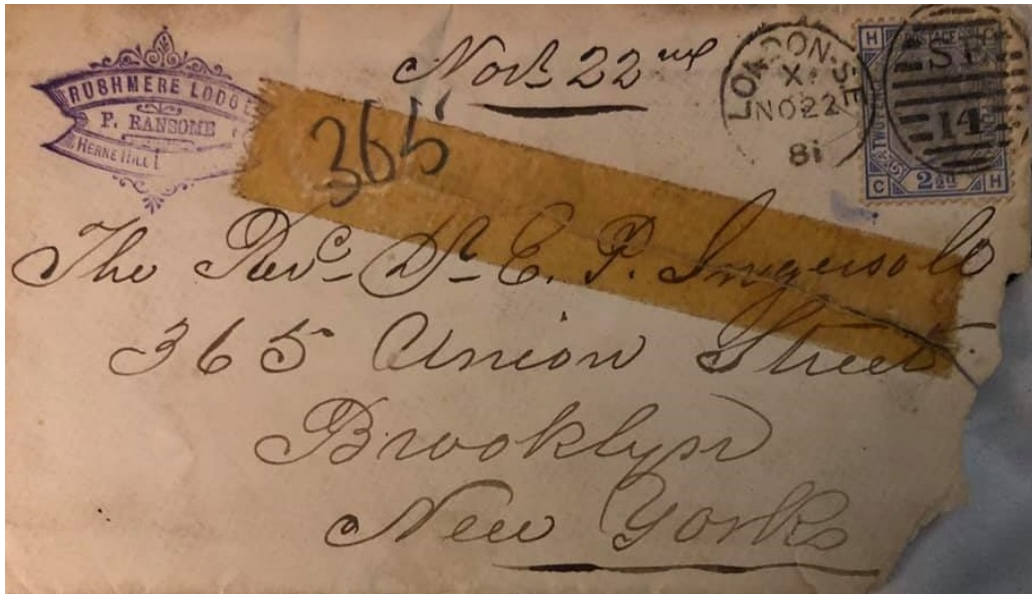 RUSHMERE LODGE
F. RANSOME
HERNE HILL
Novr 22nd
LONDON·S·E
X
NO 22
81
S.E.
14
H
H
C
H
2½d
365
The Revd Dr E. P. Ingersoll
365 Union Street
Brooklyn
New York